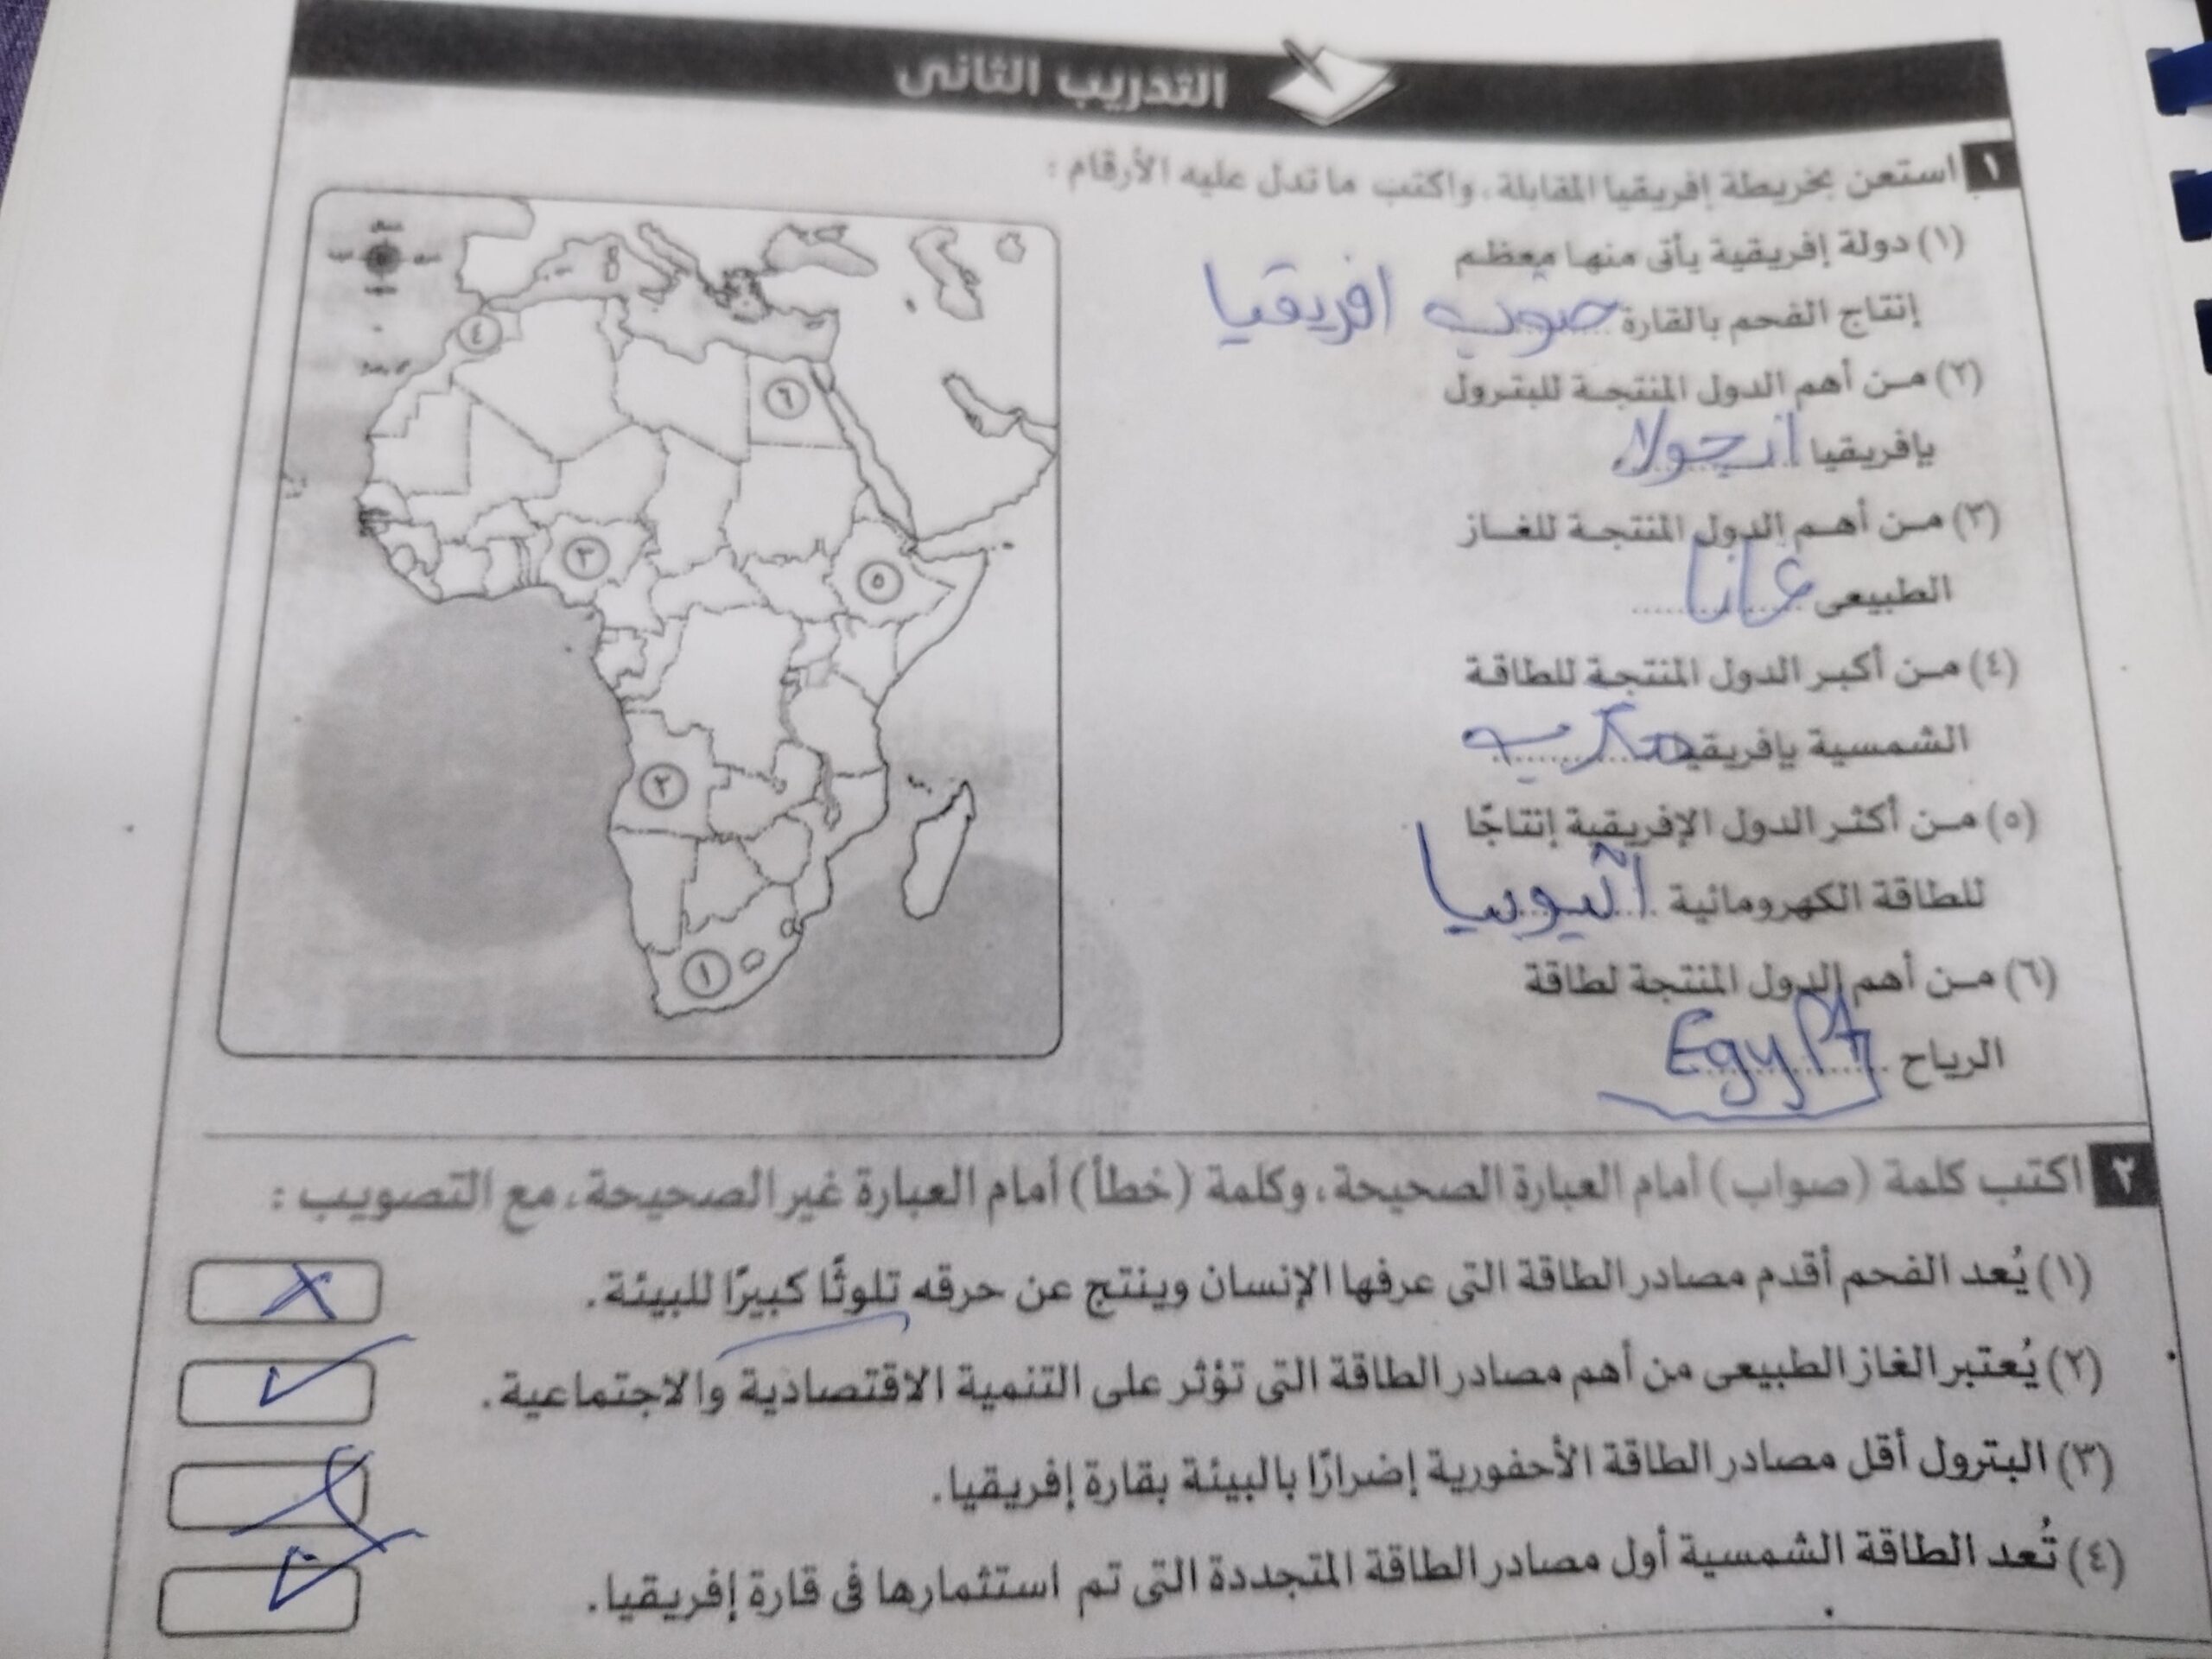 التدريب الثانى
١ استعن بخريطة إفريقيا المقابلة، واكتب ما تدل عليه الأرقام :
(١) دولة إفريقية يأتى منها معظم
إنتاج الفحم بالقارة جنوب افريقيا
(٢) من أهم الدول المنتجة للبترول
بإفريقيا انجولا
(٣) من أهم الدول المنتجة للغاز
الطبيعى غانا
(٤) من أكبر الدول المنتجة للطاقة
الشمسية بإفريقيا
(٥) من أكثر الدول الإفريقية إنتاجًا
للطاقة الكهرومائية اثيوبيا
(٦) من أهم الدول المنتجة لطاقة
الرياح Egypt
٤
٦
٣
٥
٢
١
٢ اكتب كلمة (صواب) أمام العبارة الصحيحة، وكلمة (خطأ) أمام العبارة غير الصحيحة، مع التصويب :
(١) يُعد الفحم أقدم مصادر الطاقة التى عرفها الإنسان وينتج عن حرقه تلوثًا كبيرًا للبيئة.
(٢) يُعتبر الغاز الطبيعى من أهم مصادر الطاقة التى تؤثر على التنمية الاقتصادية والاجتماعية.
(٣) البترول أقل مصادر الطاقة الأحفورية إضرارًا بالبيئة بقارة إفريقيا.
(٤) تُعد الطاقة الشمسية أول مصادر الطاقة المتجددة التى تم استثمارها فى قارة إفريقيا.